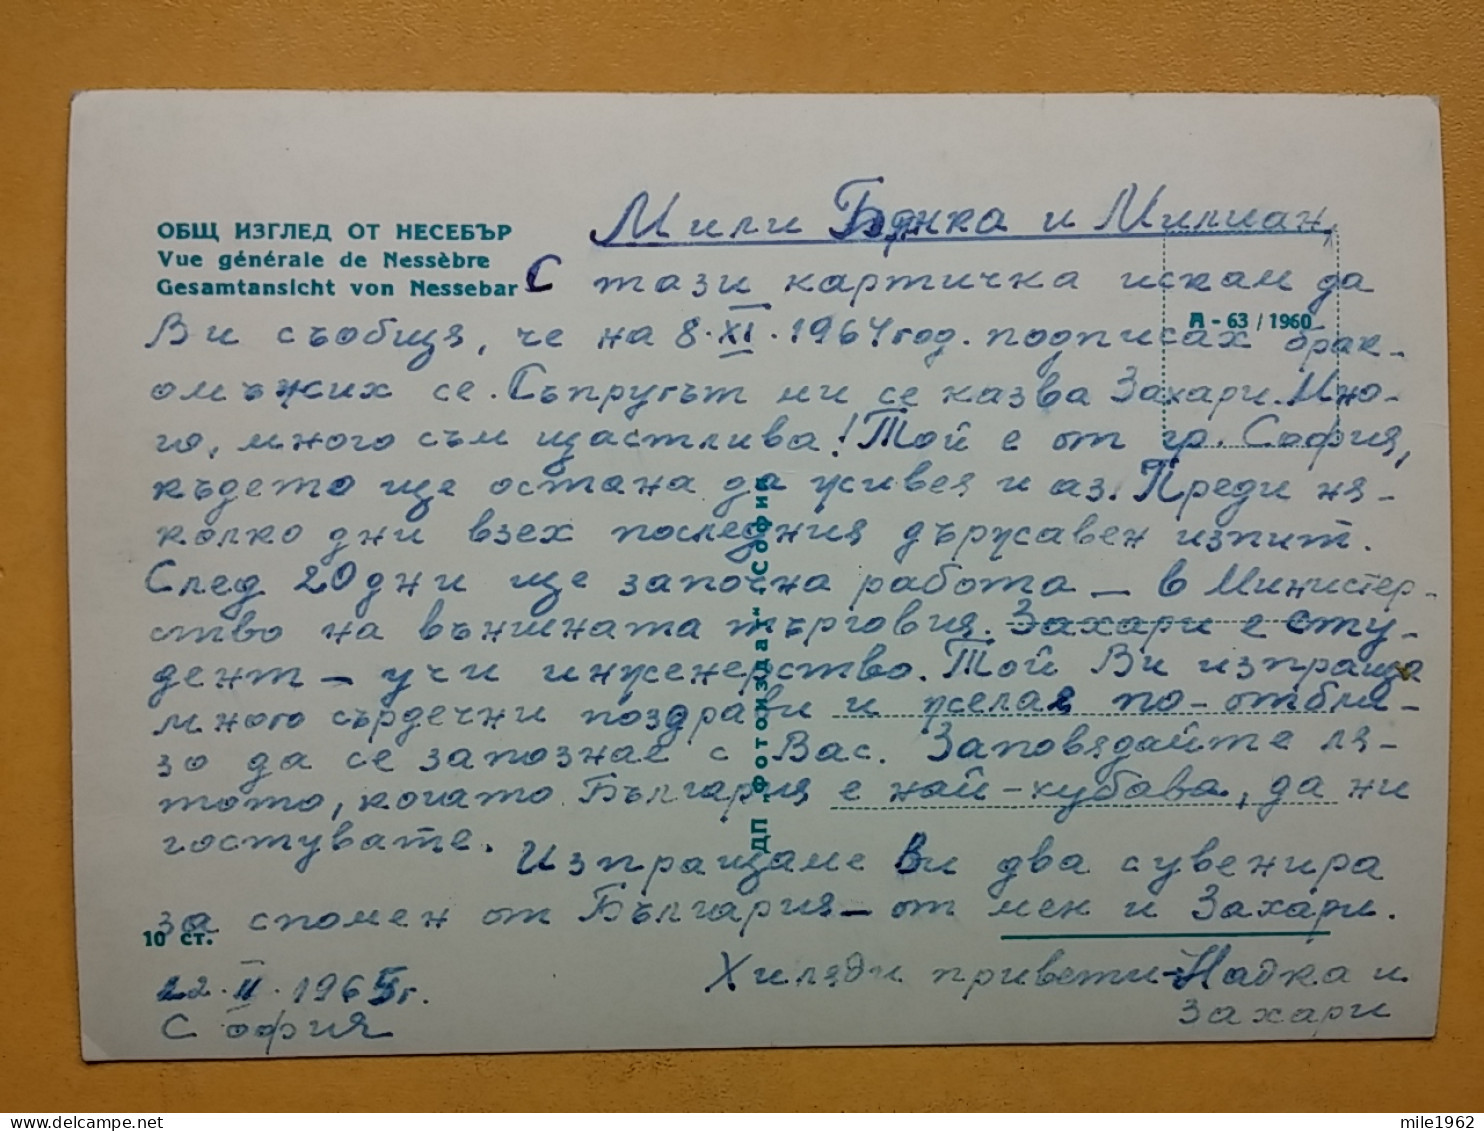 ОБЩ ИЗГЛЕД ОТ НЕСЕБЪР
Vue générale de Nessèbre
Gesamtansicht von Nessebar
А - 63 / 1960
Мили и Милиан,
С тази картичка искам да
Ви съобщя, че на 8.XI.1964 год. подписах брак-
омъжих се. Съпругът ми се казва Захари. Мно-
го, много съм щастлива! Той е от гр. София,
където ще остана да живея и аз. Преди ня-
колко дни взех последния държавен изпит.
След 20 дни ще започна работа – в Министер-
ство на външната търговия. Захари е сту-
дент – учи инженерство. Той Ви изпраща
много сърдечни поздрави и желае по-отбли-
зо да се запознае с Вас. Заповядайте ля-
тото, когато България е най-хубава, да ни
гостувате.
Изпращаме Ви два сувенира
за спомен от България – от мен и Захари.
10 ст.
Хиляди привети – Надка и
Захари
22.II.1965г.
София
ДП „Фотоиздат“ София
mile1962